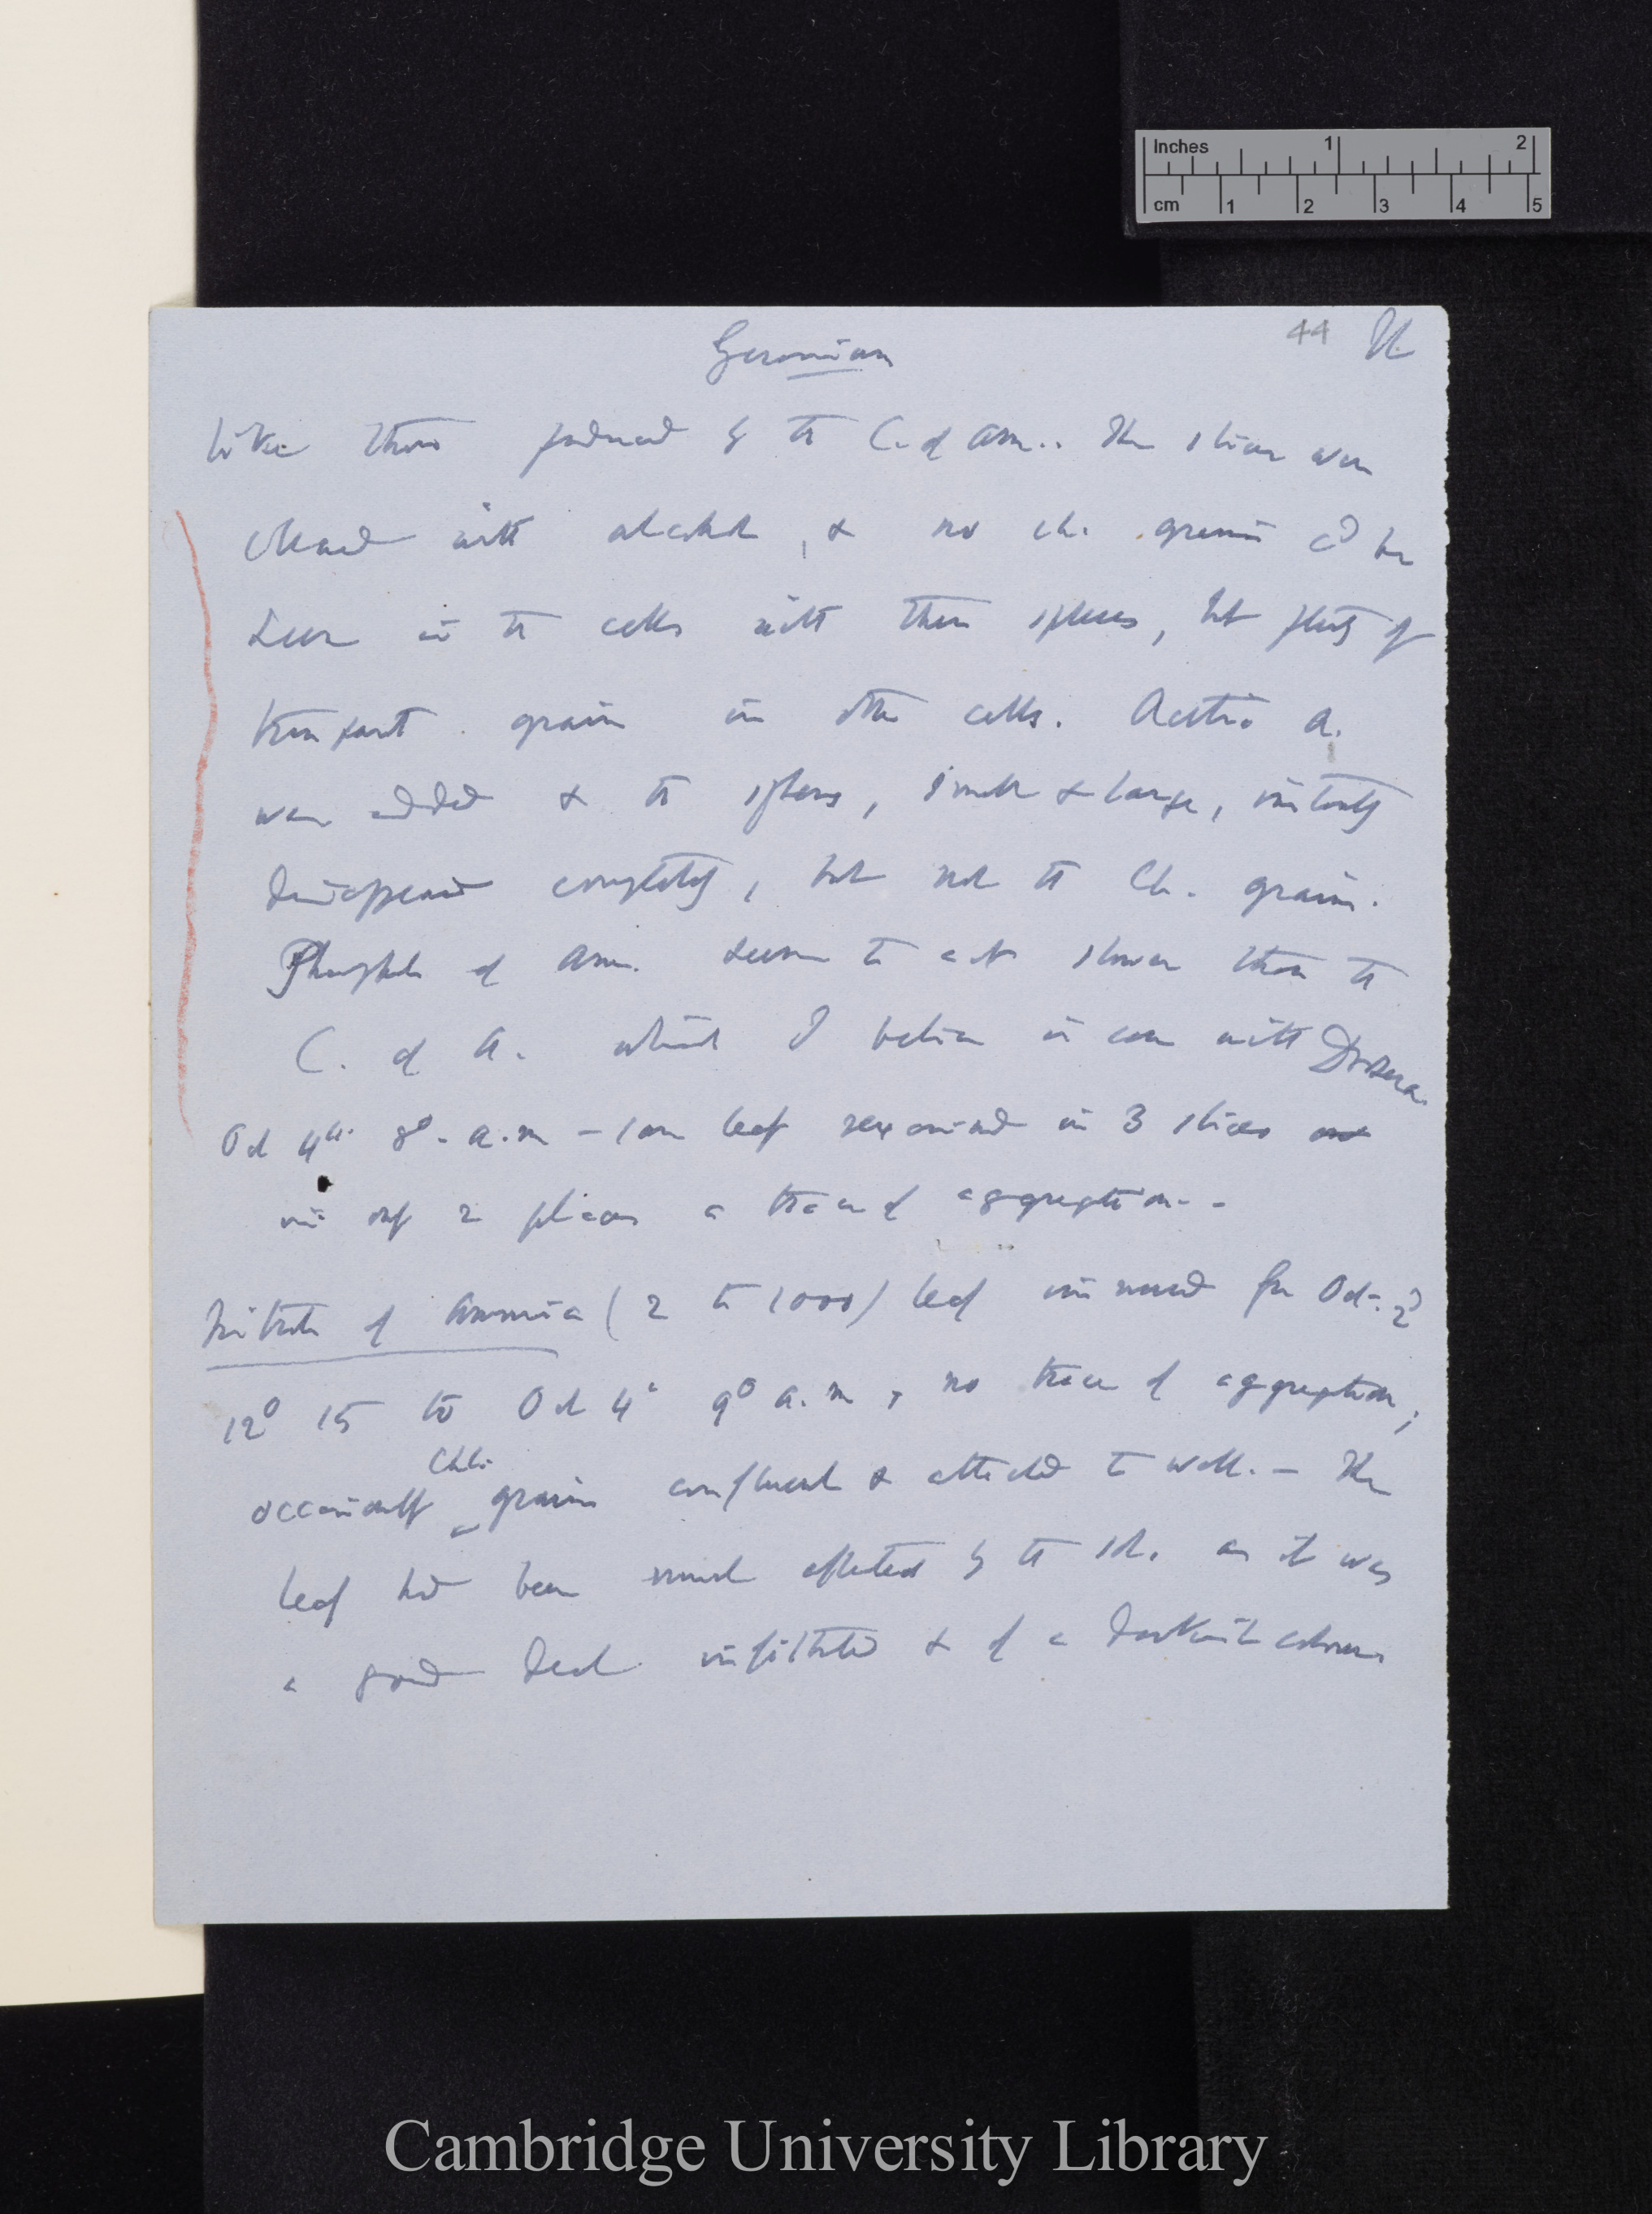 Inches 1 2
cm 1 2 3 4 5
44
Geranium
like those produced by the C. of Am.. The slices were
cleared with alcohol, & no ch. grains cd be
seen in the cells with these spheres, but plenty of
transpart. grains in other cells. Acetic A.
was added & the spheres, small & large, instantly
disappeared completely, but not the Ch. grains.
Phosphate of Am. seems to act slower than the
C. of A. which I believe is case with Drosera.
Oct 4th. 8°. a.m — same leaf reexamined in 3 slices and
in only 2 places a trace of aggregation. -
Nitrate of Ammonia (2 to 1000) leaf immersed from Oct. 2d
12° 15 to Oct 4 9° a.m, no trace of aggregation;
Chl.
occasionally grains confluent & attached to wall. — The
leaf had been much affected by the sol. as it was
a good deal infiltrated & of a darkish colour.
Cambridge University Library